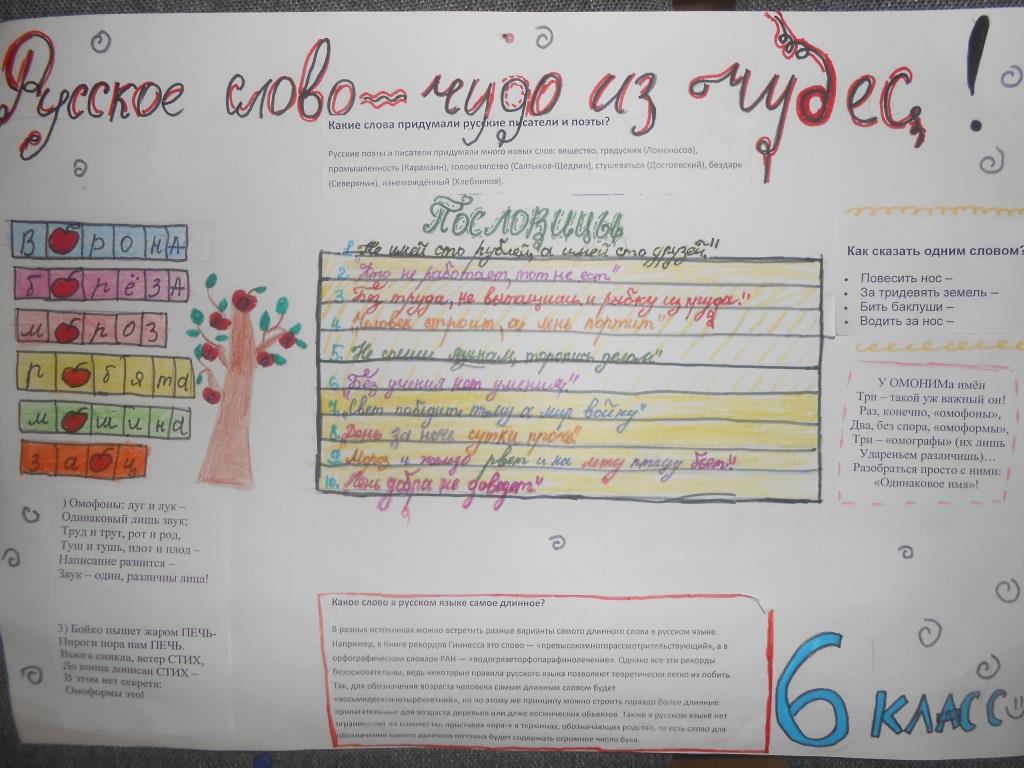 Русское слово – чудо из чудес!
Какие слова придумали русские писатели и поэты?
Русские поэты и писатели придумали много новых слов: вещество, градусник (Ломоносов),
промышленность (Карамзин), головотяпство (Салтыков-Щедрин), стушеваться (Достоевский), бездарь
(Северянин), изнемождённый (Хлебников).
В рона
б рёза
м роз
р бята
м шина
за ц
Пословицы
1. "Не имей сто рублей, а имей сто друзей"
2. "Кто не работает, тот не ест."
3. "Без труда, не вытащишь и рыбку из пруда."
4. "Человек строит, а лень портит"
5. "Не спеши языком, торопись делом"
6. "Без учения нет умения."
7. "Свет победит тьму а мир войну"
8. "День за ночь сутки прочь"
9. "Мороз и железо рвет и на лету птицу бьет."
10. "Лень добра не доведет"
Как сказать одним словом?
• Повесить нос –
• За тридевять земель –
• Бить баклуши –
• Водить за нос –
У ОМОНИМа имён
Три – такой уж важный он!
Раз, конечно, «омофоны»,
Два, без спора, «омоформы»,
Три – «омографы» (их лишь
Удареньем различишь)…
Разобраться просто с ними:
«Одинаковое имя»!
) Омофоны: луг и лук –
Одинаковый лишь звук;
Труд и трут, рот и род,
Туш и тушь, плот и плод –
Написание разнится –
Звук – один, различны лица!
3) Бойко пышет жаром ПЕЧЬ-
Пироги пора нам ПЕЧЬ.
Вьюга сникла, ветер СТИХ,
До конца дописан СТИХ –
В этом нет секрета:
Омоформы это!
Какое слово в русском языке самое длинное?
В разных источниках можно встретить разные варианты самого длинного слова в русском языке.
Например, в Книге рекордов Гиннесса это слово — «превысокомногорассмотрительствующий», а в
орфографическом словаре РАН — «водогрязеторфопарафинолечение». Однако все эти рекорды
безосновательны, ведь некоторые правила русского языка позволяют теоретически легко их побить.
Так, для обозначения возраста человека самым длинным словом будет
«восьмидесятичетырёхлетний», но по этому же принципу можно строить гораздо более длинные
прилагательные для возраста деревьев или даже космических объектов. Также в русском языке нет
ограничений на количество приставок «пра-» в терминах, обозначающих родство, то есть слово для
обозначения самого далёкого потомка будет содержать огромное число букв.
6 класс